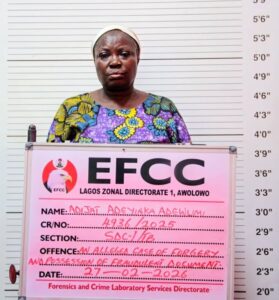 5'6
5'3
5'0
EFCC
EFCC
LAGOS ZONAL DIRECTORATE 1, AWOLOWO
NAME: ADIJAT ADEYINKA ADEWUMI
CR/NO: 4936/2025
SECTION:
OFFENCE: AN ALLEGED CASE OF FORGERY
AND POSSESSION OF FRAUDULENT DOCUMENT
DATE: 27-02-2026
Forensics and Crime Laboratory Services Directorate